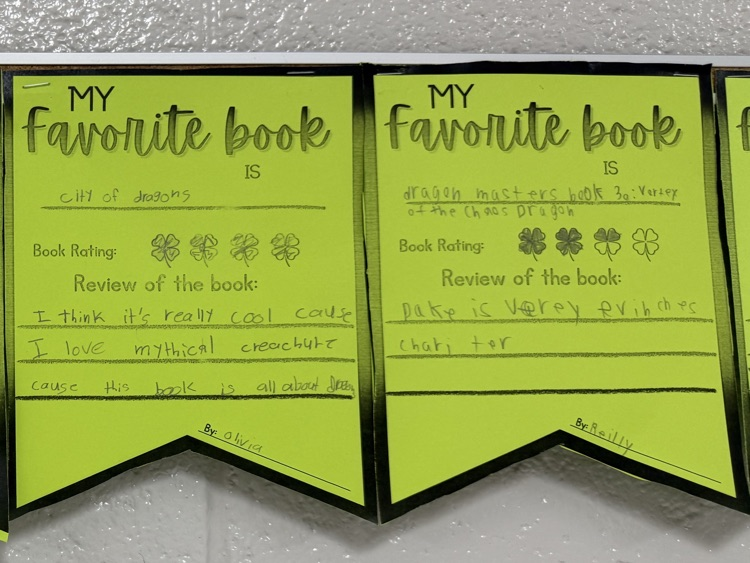 MY
favorite book
IS
City of dragons
Book Rating:
Review of the book:
I think it's really cool cause
I love mythical creachurz
cause this book is all about
By: Olivia
MY
favorite book
IS
dragon masters book 30: Vortex
of the Chaos Dragon
Book Rating:
Review of the book:
is verey
By: Reilly
f